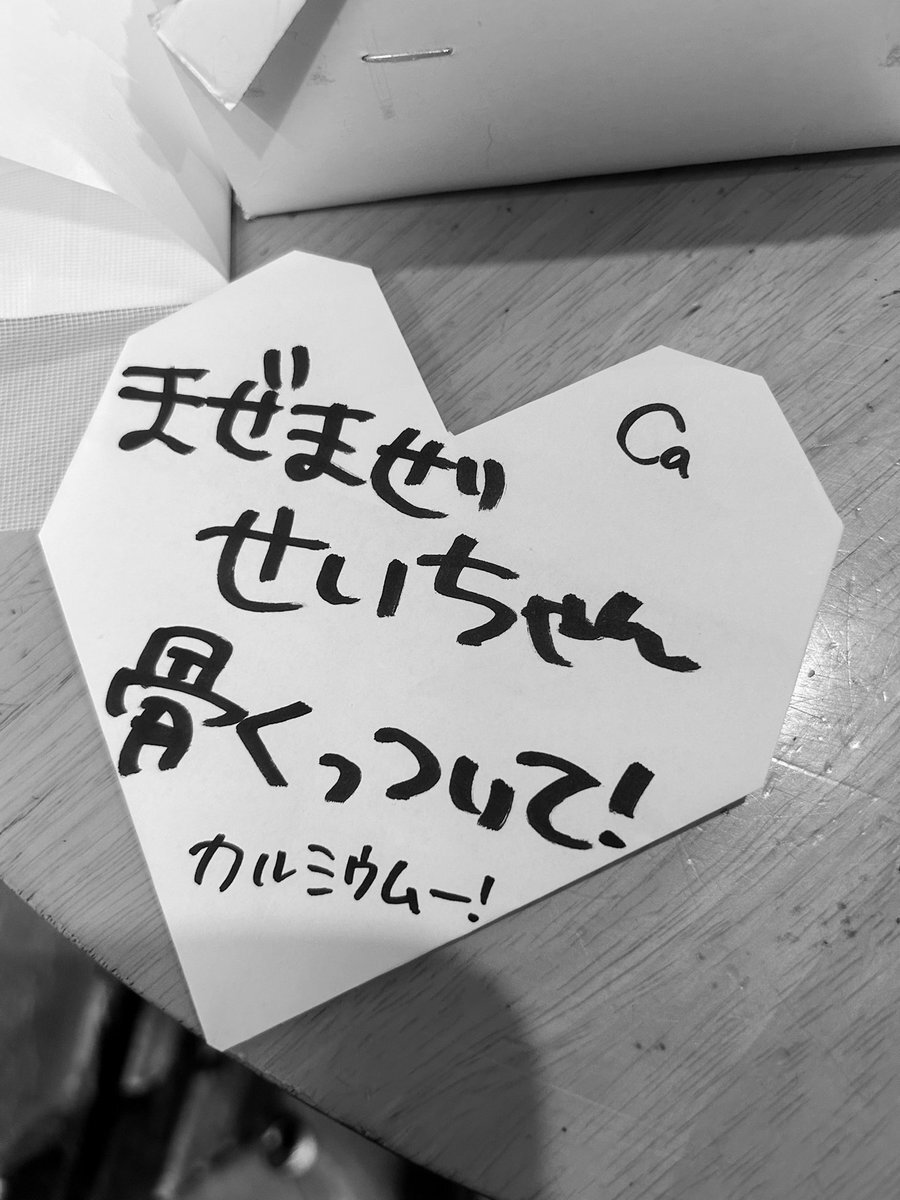 まぜまぜり
Ca
せいちゃん
骨くっついて!
カルミウムー!